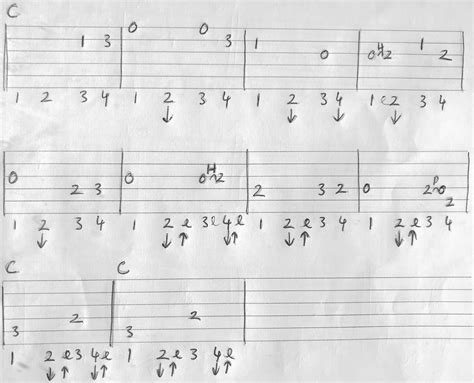 C
0 0
1 3 3 1 0 0H2 1 2
1 2 3 4 1 2 3 4 1 2 3 4 1 e 2 3 4
↓ ↓ ↓ ↓
0 2 3 0 0H2 2 3 2 0 2P0 2
1 2 3 4 1 2 e 3 e 4 e 1 2 e 3 4 1 2 e 3 4
↓ ↓ ↑ ↓ ↑ ↓ ↑ ↓ ↑
C C
3 2 3 2
1 2 e 3 4 e 1 2 e 3 4 e
↓ ↑ ↓ ↑ ↓ ↑ ↓ ↑